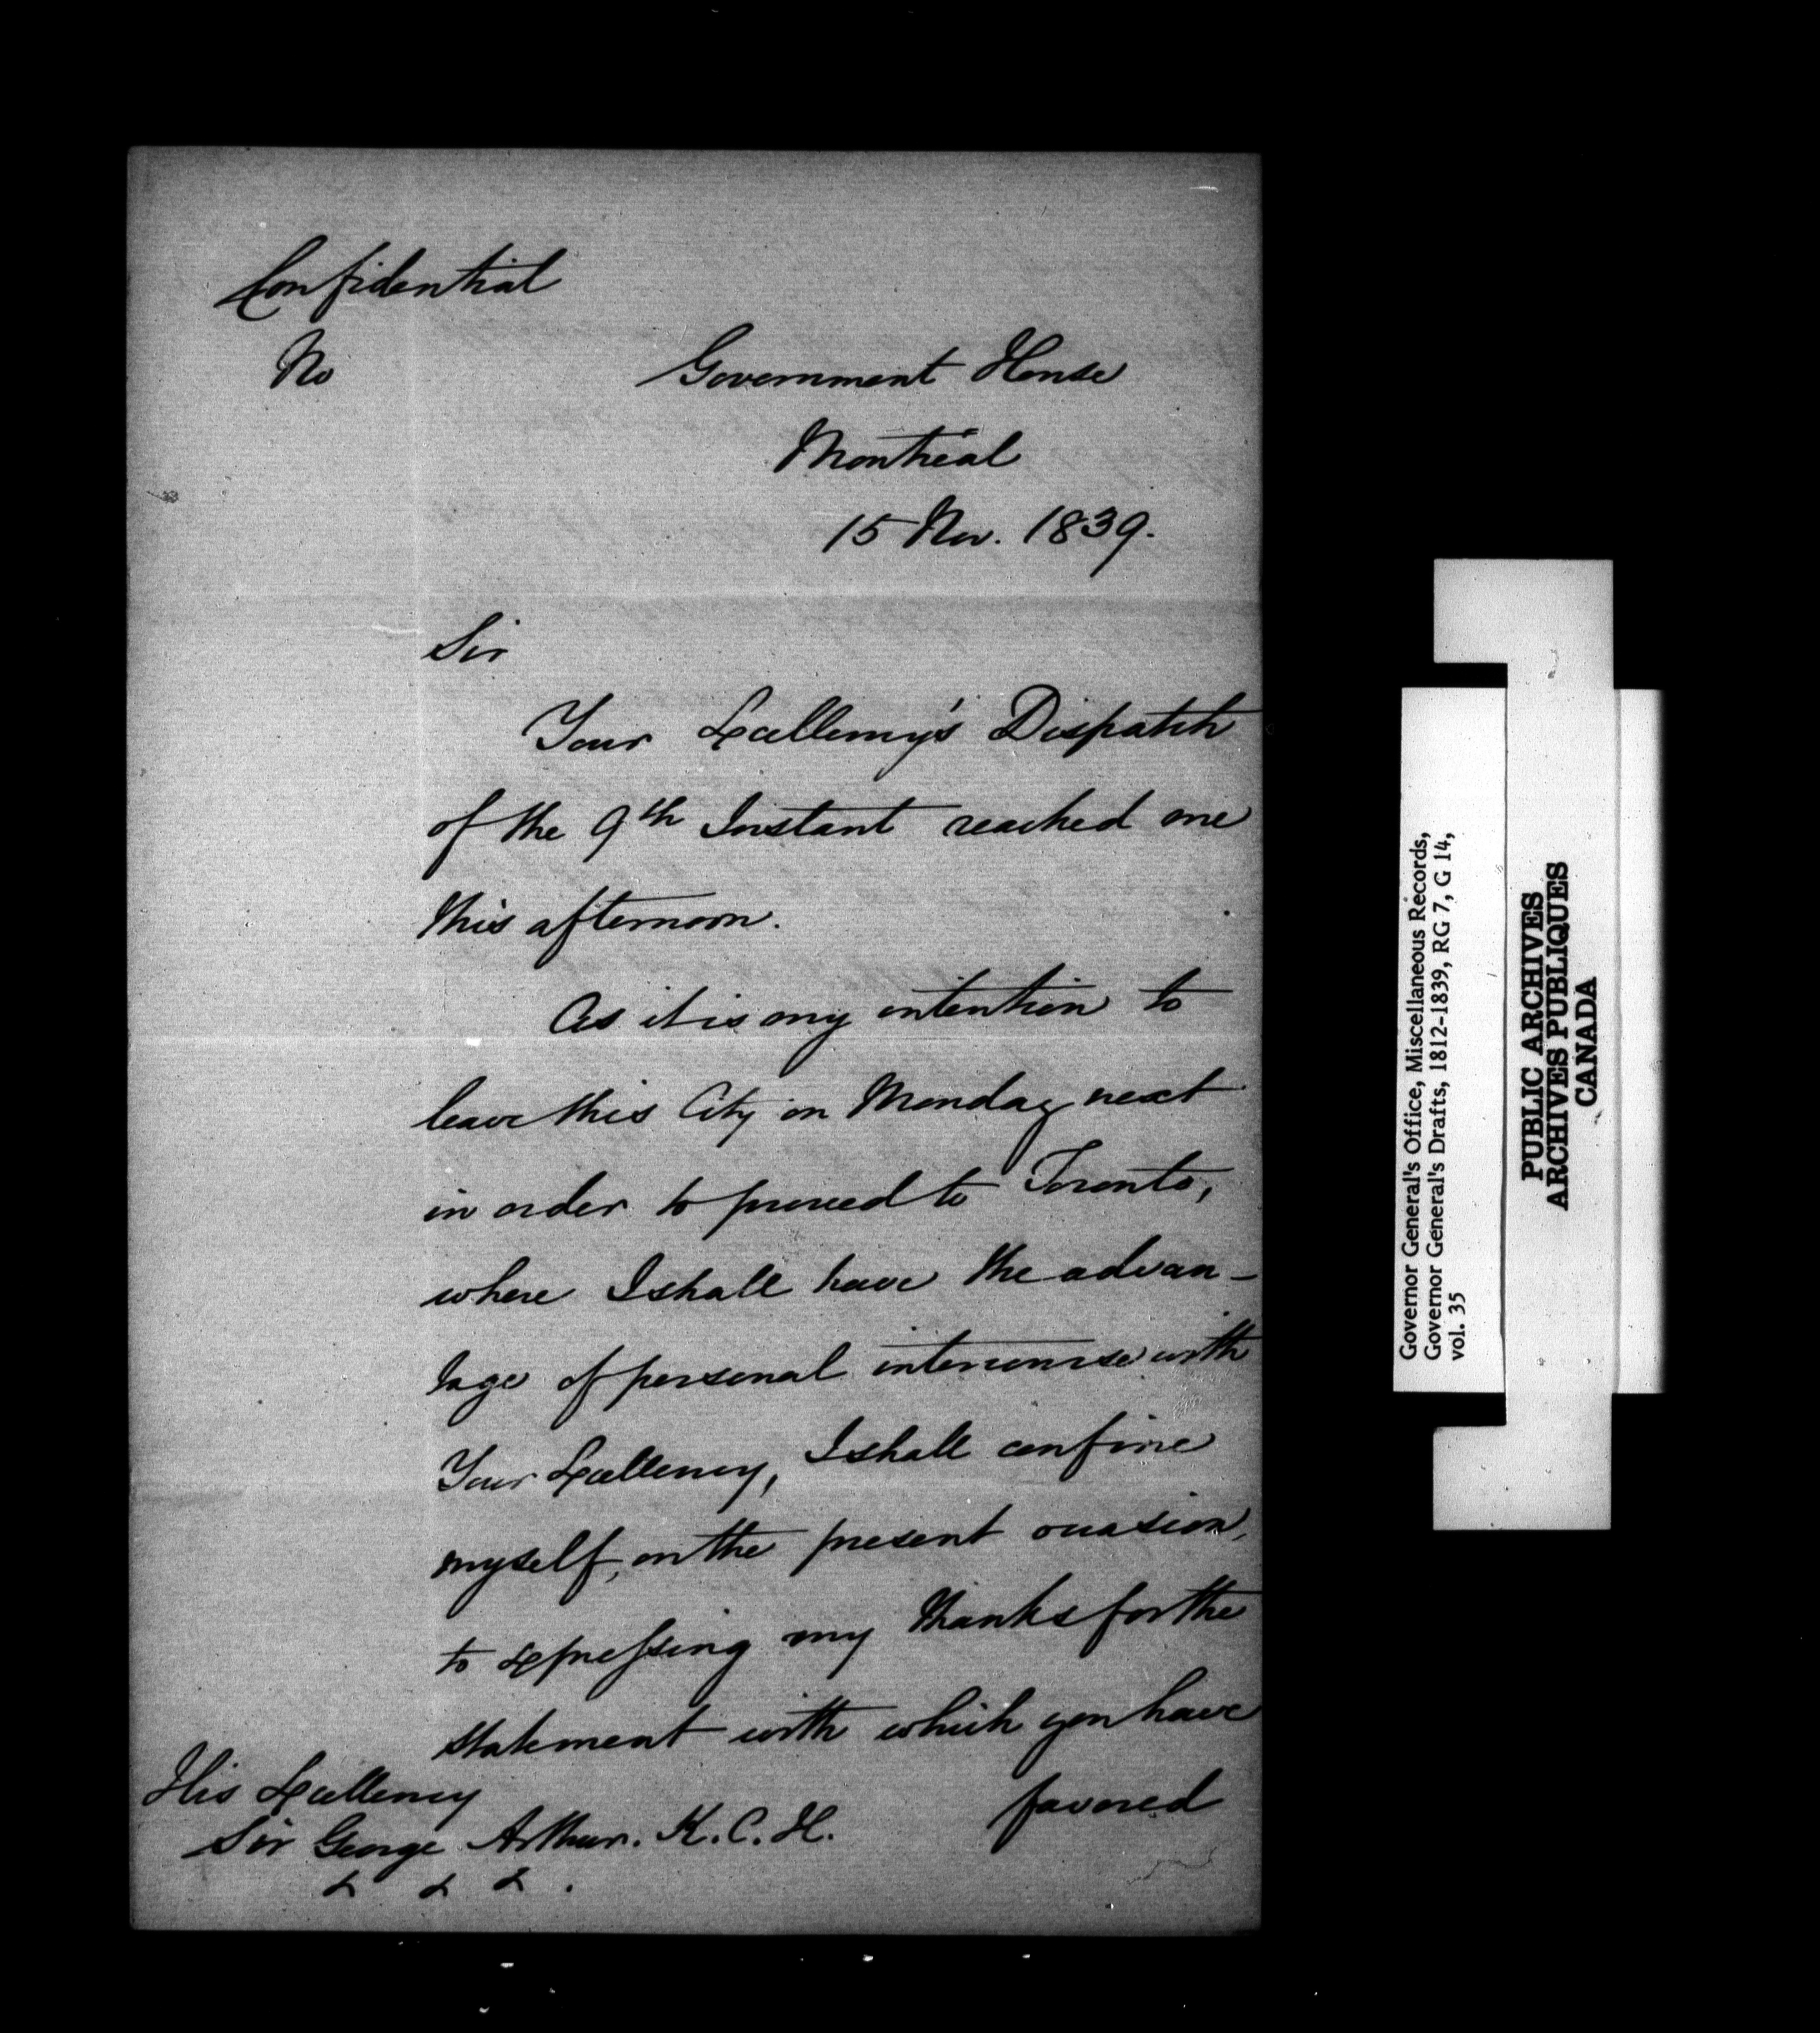 Confidential
No
Government House
Montréal
15 Nov. 1839.
Sir
Your Excellency's Dispatch
of the 9th Instant reached me
this afternoon.
As it is my intention to
leave this City on Monday next
in order to proceed to Toronto,
where I shall have the advan-
tage of personal intercourse with
Your Excellency, I shall confine
myself, on the present occasion,
to expressing my thanks for the
statement with which you have
favored
His Excellency
Sir George Arthur. K.C.H.
& & & .
Governor General's Office, Miscellaneous Records,
Governor General's Drafts, 1812-1839, RG 7, G 14,
vol. 35
PUBLIC ARCHIVES
ARCHIVES PUBLIQUES
CANADA